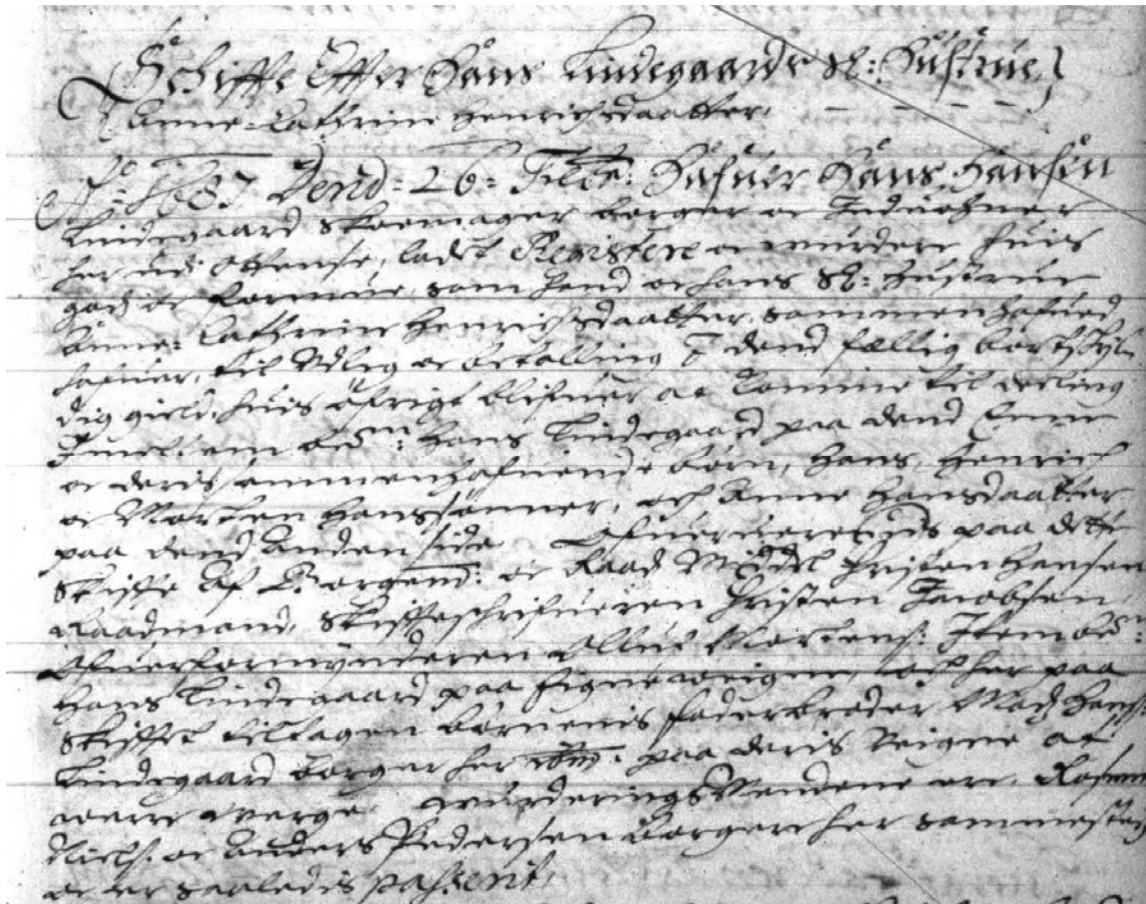 Schiffte Effter Hans Lindegaards Sl: Hustrue
Anne-Cathrine Henrichsdaatter.
Ao: 1687 Dend= 26= hafuer Hans Hansen
Lindegaard Skoemager borger oc Indwohner
her udi Ottense, ladet Registere oc wurdere huis
godz oc formue, som hand oc hans Sl: Hustrue
Anne-Cathrine Henrichsdaatter, sammen hafued
hafuer, til Udleg oc betalling dend fællig bortskyl-
dig gield, huis öfrigt blifuer at komme til deeling
Imellem bem: Hans Lindegaard paa dend Eene
oc deris sammenhafuende börn, Hans, Henrich
oc Morten Hanssönner, och Anne Hansdaatter
paa dend Anden side. Ofuerwerendis paa dette
Skiffte Af Borgem: oc Raad Christen Hansen
Raadmand, Skiffteschrifueren Christen Jacobsen
Ofuerformynderen Mortens: Item bem:
Hans Lindegaard paa Eigne weigne, och her paa
Skifftet tiltagen börnenis faderbroder Madz Hans:
Lindegaard borger her paa deris Veigne at
were werge. wurderingsMendene ere,
Niels: oc Anders Pedersen borgere her sammested
oc er saaledis passerit,